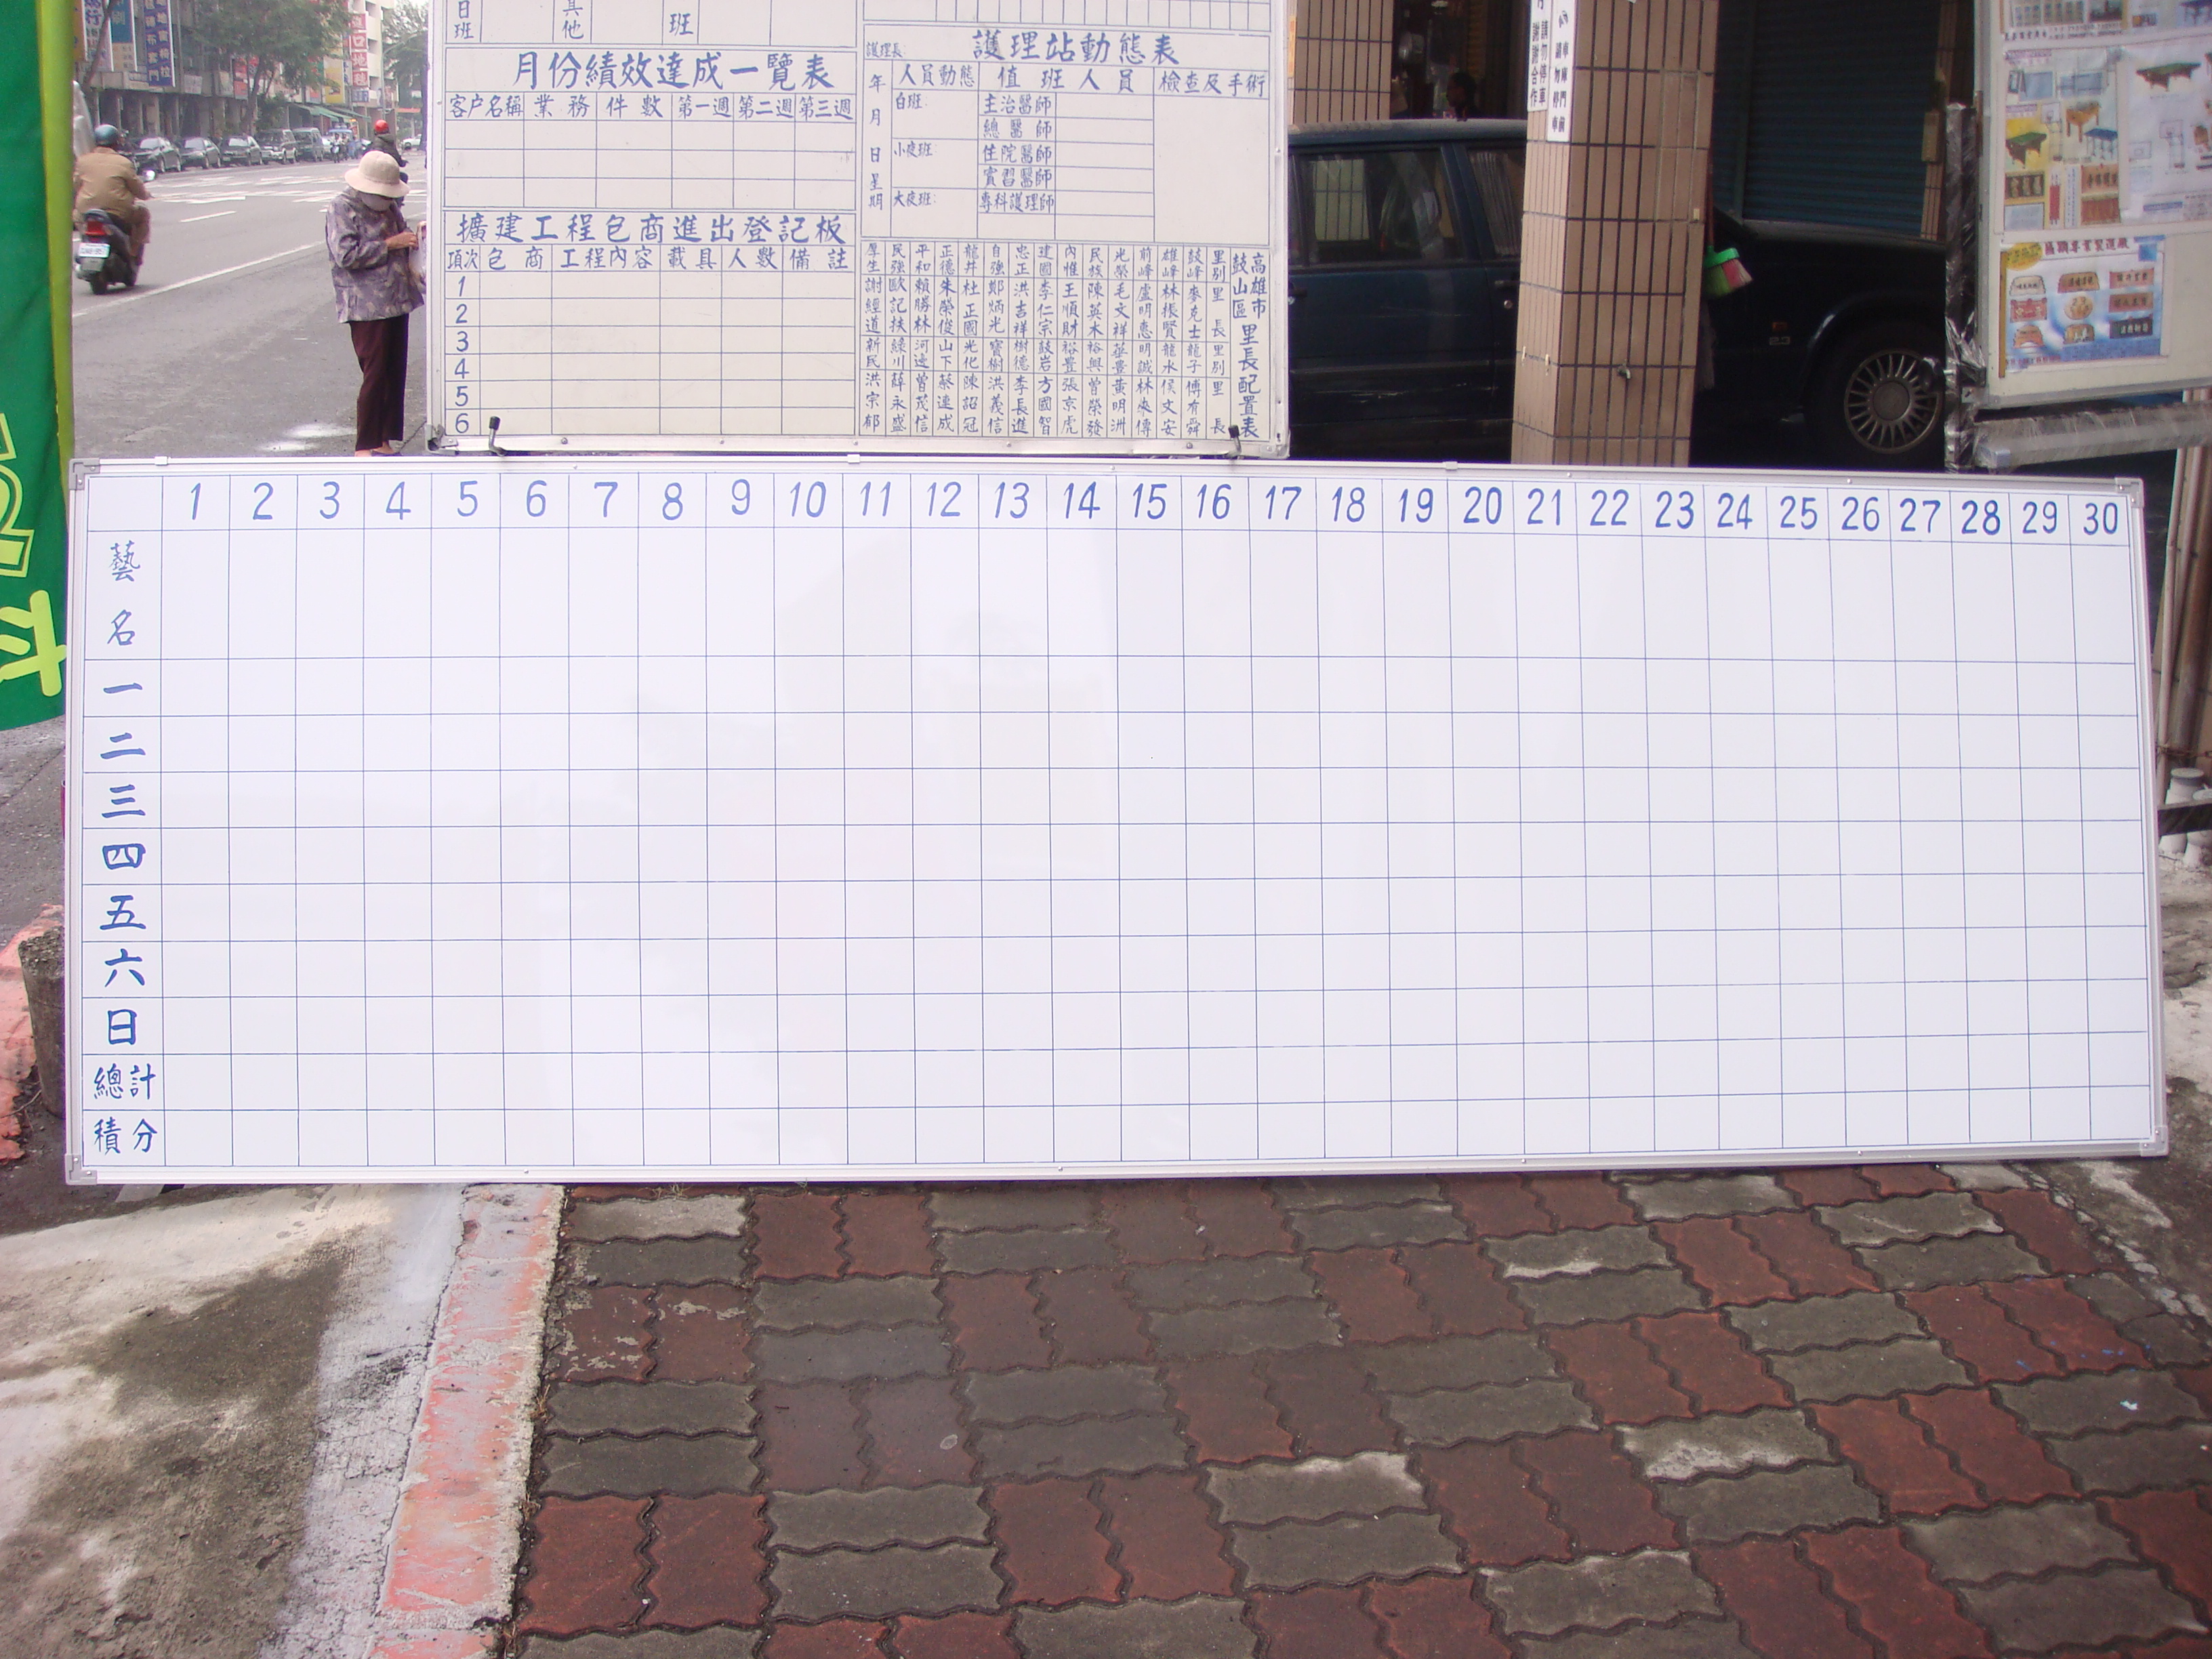 日班 其他 班
月份績效達成一覽表
客户名稱 業務 件數 第一週 第二週 第三週
擴建工程包商進出登記板
項次 包商 工程內容 載具 人數 備註
1
2
3
4
5
6
護理長:
護理站動態表
年月日星期 人員動態 值班人員 檢查及手術
白班: 主治醫師
總醫師
小夜班: 住院醫師
實習醫師
大夜班: 專科護理師
高雄市鼓山區里長配置表
里別 鼓峰 雄峰 前峰 光榮 民族 內惟 建國 忠正 自強 龍井 正德 平和 民強 厚生
里長 麥克士 林振賢 盧明惠 毛文祥 陳英木 王順財 李仁宗 洪吉祥 鄭炳光 杜正國 朱榮俊 賴勝林 歐記扶 謝經道
里別 龍子 龍水 明誠 華豐 裕興 裕豐 鼓岩 樹德 寶樹 光化 山下 河邊 綠川 新民
里長 傅有舜 侯文安 黃明洲 曾榮發 張京虎 方國智 李長進 洪義信 陳詔冠 蔡連成 曾茂信 薛永盛 洪宗郁
請勿停車
謝謝合作
1 2 3 4 5 6 7 8 9 10 11 12 13 14 15 16 17 18 19 20 21 22 23 24 25 26 27 28 29 30
藝名
一
二
三
四
五
六
日
總計
積分